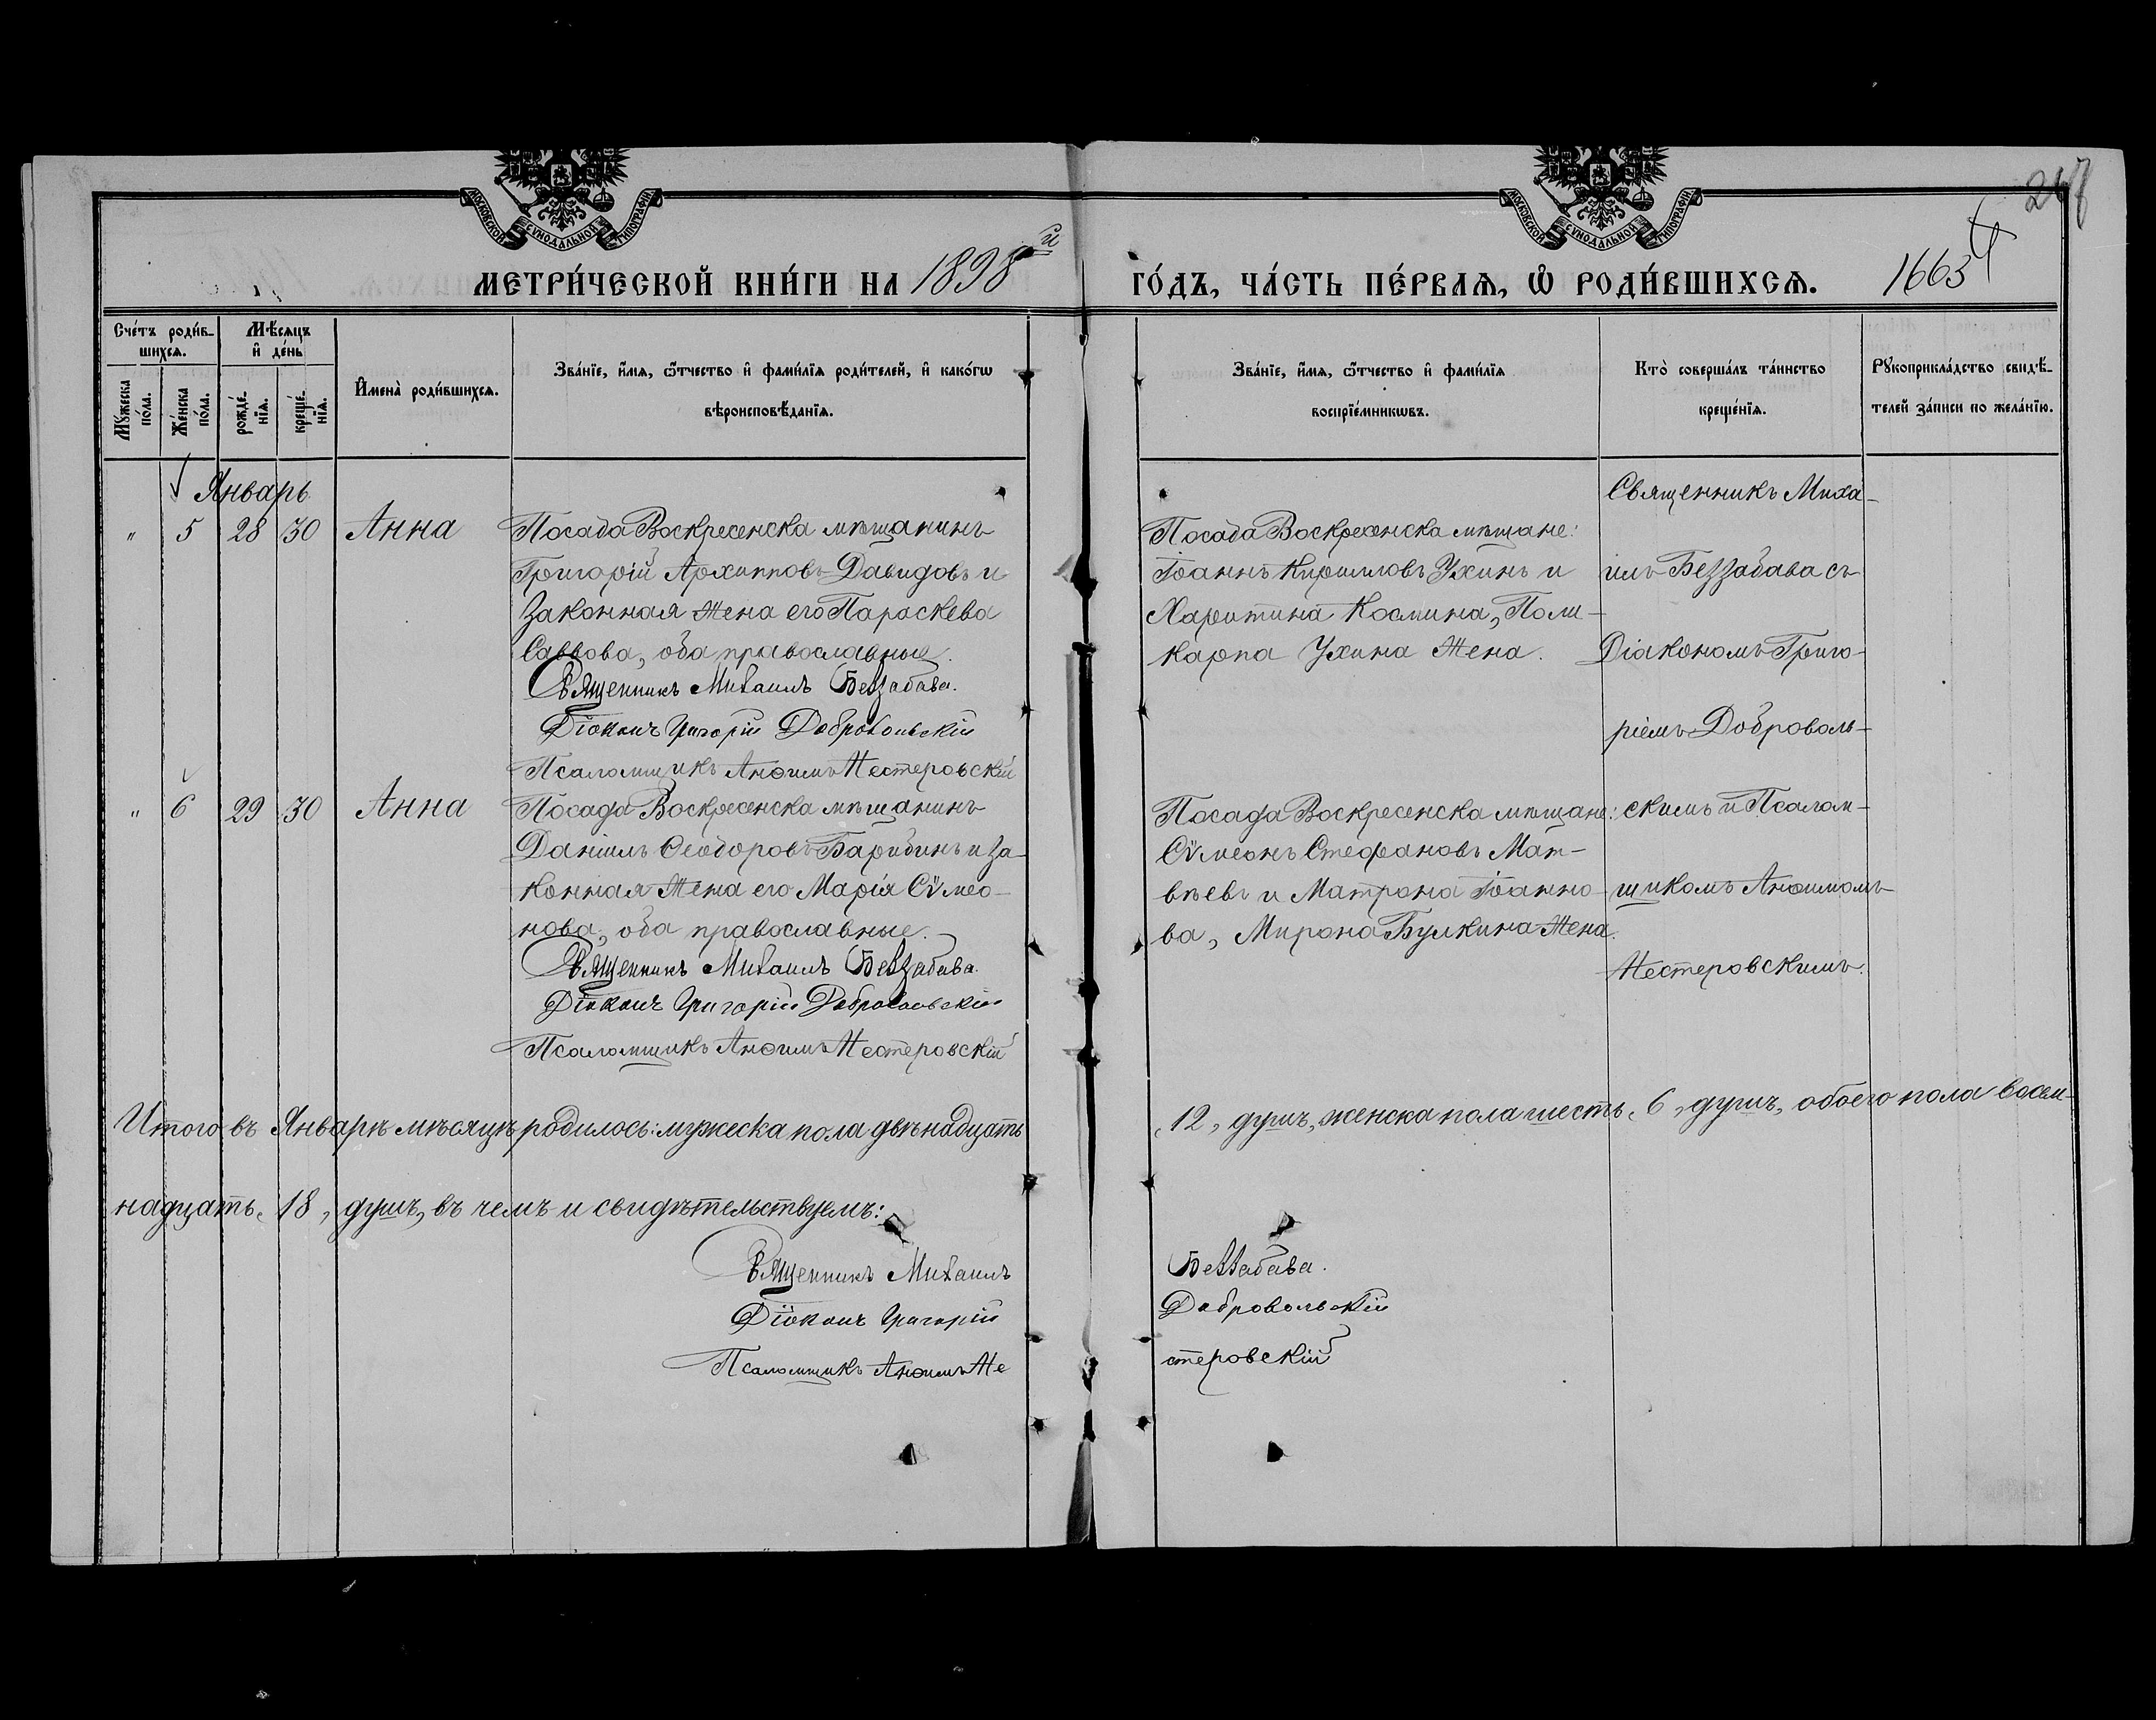 МОСКОВСКОЙ СѴНОДАЛЬНОЙ ТИПОГРАФІИ
МОСКОВСКОЙ СѴНОДАЛЬНОЙ ТИПОГРАФІИ
МЕТРИ́ЧЕСКОЙ КНИ́ГИ НА 1898й ГО́ДЪ, ЧА́СТЬ ПЕ́РВАѦ, Ѡ РОДИ́ВШИХСѦ. 1663
Сче́тъ роди́в-
шихсѧ.
Мꙋ́жеска по́ла.
Же́нска по́ла.
Мѣ́сѧцъ
и҆ де́нь
рожде́-
нїѧ.
креще́-
нїѧ.
И҆мена̀ роди́вшихсѧ.
Зва́нїе, и҆́мѧ, ѻ҆́тчество и҆ фами́лїѧ роди́телей, и҆ како́гѡ
вѣроисповѣ́данїѧ.
Зва́нїе, и҆́мѧ, ѻ҆́тчество и҆ фами́лїѧ
воспрїе́мникѡвъ.
Кто̀ соверша́лъ та́инство
креще́нїѧ.
Рꙋкоприкла́дство свидѣ́-
телей за́писи по жела́нїю.
Январь
" 5 28 30 Анна
Посада Воскресенска мѣщанинъ
Григорій Архипповъ Давидовъ и
законная жена его Параскева
Саввова, оба православные.
Священникъ Михаилъ Беззабава.
Діаконъ Григорій Добровольскій
Псаломщикъ Анѳимъ Нестеровскій
Посада Воскресенска мѣщане:
Іоаннъ Кирилловъ Ухинъ и
Харитина Космина, Поли-
карпа Ухина жена.
Священникъ Миха-
илъ Беззабава съ
Діакономъ Григо-
ріемъ Доброволь-
скимъ и Псалом-
щикомъ Анѳимомъ
Нестеровскимъ.
" 6 29 30 Анна
Посада Воскресенска мѣщанинъ
Даніилъ Ѳеодоровъ Барибинъ и за-
конная жена его Марія Сѵмео-
нова, оба православные.
Священникъ Михаилъ Беззабава.
Діаконъ Григорій Добровольскій
Псаломщикъ Анѳимъ Нестеровскій
Посада Воскресенска мѣщане:
Сѵмеонъ Стефановъ Мат-
вѣевъ и Матрона Іоанно-
ва, Мирона Булкина жена.
Итого въ Январѣ мѣсяцѣ родилось: мужеска пола двѣнадцать „12„ душъ, женска пола шесть „6„ душъ, обоего пола восем-
надцать „18„ душъ, въ чемъ и свидѣтельствуемъ:
Священникъ Михаилъ Беззабава.
Діаконъ Григорій Добровольскій
Псаломщикъ Анѳимъ Нестеровскій